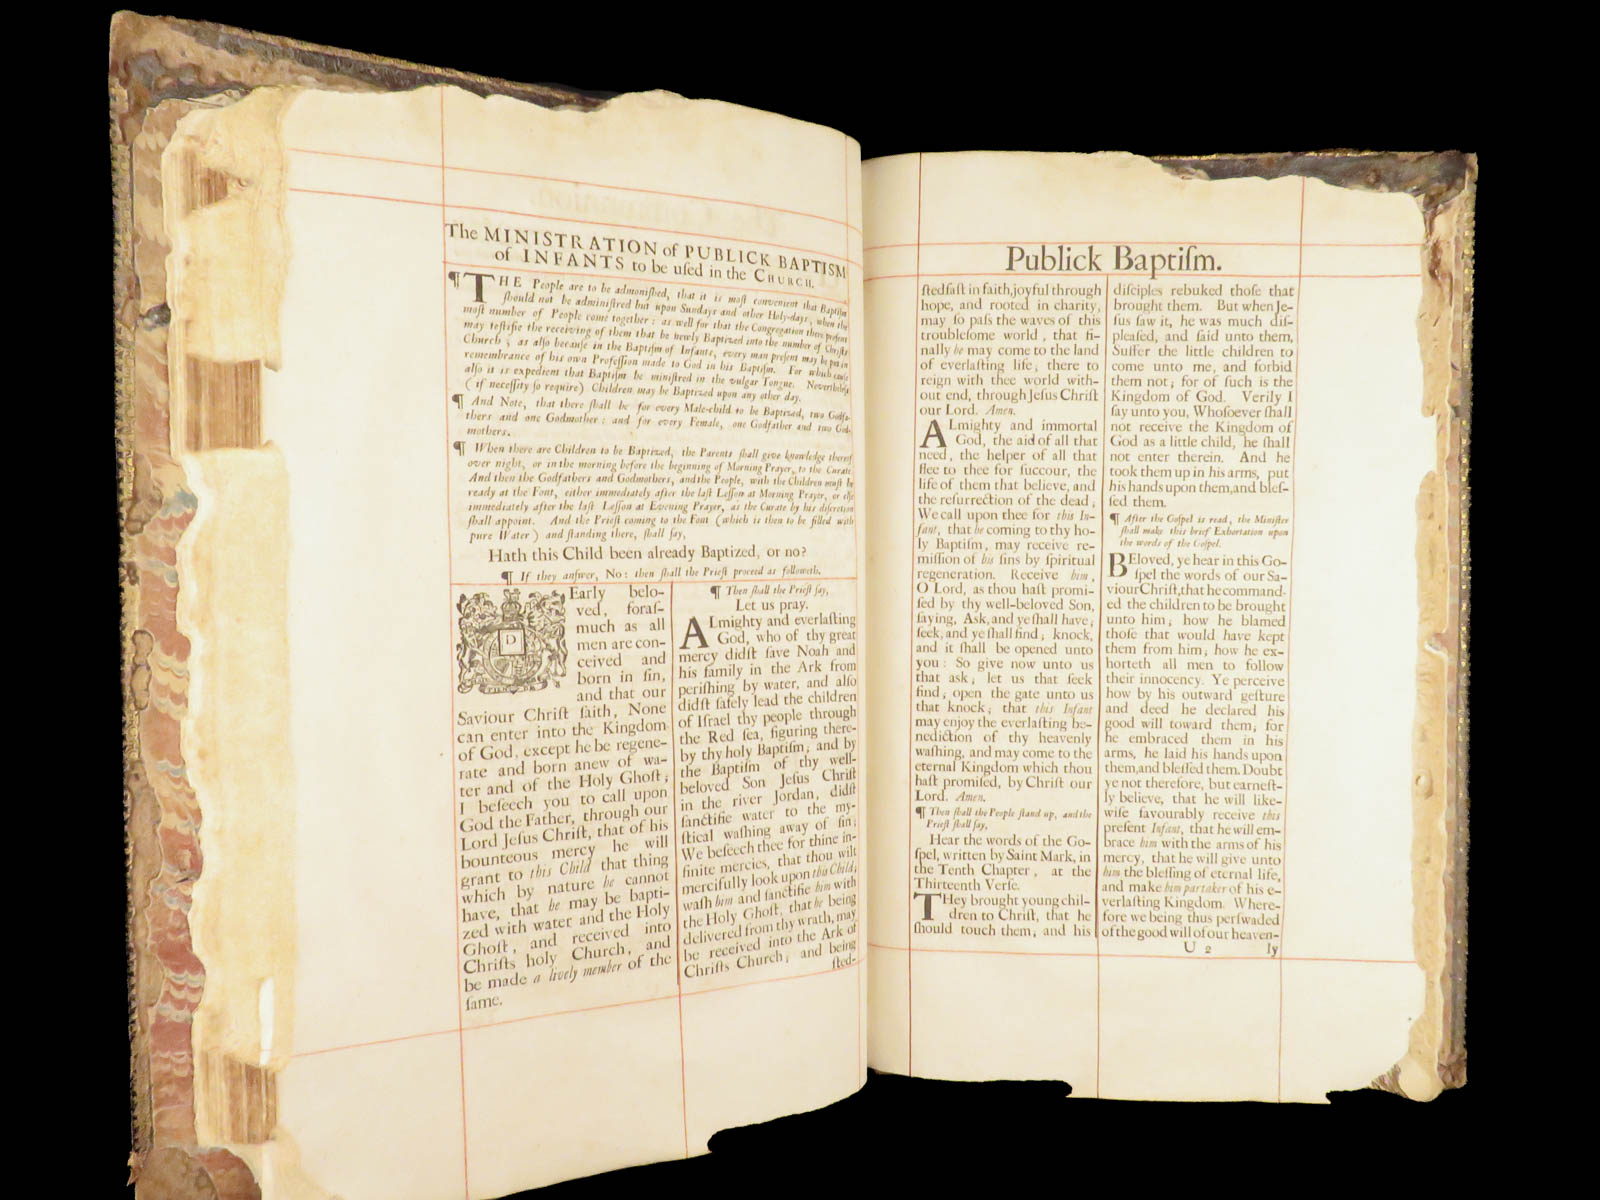 The MINISTRATION of PUBLICK BAPTISM
of INFANTS to be uſed in the CHURCH.
¶ THE People are to be admoniſhed, that it is moſt convenient that Baptiſm
ſhould not be adminiſtred but upon Sundays and other Holy-days, when the
moſt number of People come together: as well for that the Congregation there preſent
may teſtifie the receiving of them that be newly Baptized into the number of Chriſts
Church; as alſo becauſe in the Baptiſm of Infants, every man preſent may be put in
remembrance of his own Profeſſion made to God in his Baptiſm. For which cauſe
alſo it is expedient that Baptiſm be miniſtred in the vulgar Tongue. Nevertheleſs
(if neceſſity ſo require) Children may be Baptized upon any other day.
¶ And Note, that there ſhall be for every Male-child to be Baptized, two Godfa-
thers and one Godmother: and for every Female, one Godfather and two God-
mothers.
¶ When there are Children to be Baptized, the Parents ſhall give knowledge thereof
over night, or in the morning before the beginning of Morning Prayer, to the Curate.
And then the Godfathers and Godmothers, and the People, with the Children muſt be
ready at the Font, either immediately after the laſt Leſſon at Morning Prayer, or elſe
immediately after the laſt Leſſon at Evening Prayer, as the Curate by his diſcretion
ſhall appoint. And the Prieſt coming to the Font (which is then to be filled with
pure Water) and ſtanding there, ſhall ſay,
Hath this Child been already Baptized, or no?
¶ If they anſwer, No: then ſhall the Prieſt proceed as followeth.
DEarly belo-
ved, foraſ-
much as all
men are con-
ceived and
born in ſin,
and that our
Saviour Chriſt ſaith, None
can enter into the Kingdom
of God, except he be regene-
rate and born anew of wa-
ter and of the Holy Ghoſt;
I beſeech you to call upon
God the Father, through our
Lord Jeſus Chriſt, that of his
bounteous mercy he will
grant to this Child that thing
which by nature he cannot
have, that he may be bapti-
zed with water and the Holy
Ghoſt, and received into
Chriſts holy Church, and
be made a lively member of the
ſame.
¶ Then ſhall the Prieſt ſay,
Let us pray.
ALmighty and everlaſting
God, who of thy great
mercy didſt ſave Noah and
his family in the Ark from
periſhing by water, and alſo
didſt ſafely lead the children
of Iſrael thy people through
the Red ſea, figuring there-
by thy holy Baptiſm; and by
the Baptiſm of thy well-
beloved Son Jeſus Chriſt
in the river Jordan, didſt
ſanctifie water to the my-
ſtical waſhing away of ſin;
We beſeech thee for thine in-
finite mercies, that thou wilt
mercifully look upon this Child;
waſh him and ſanctifie him with
the Holy Ghoſt, that he being
delivered from thy wrath, may
be received into the Ark of
Chriſts Church; and being
ſted-
Publick Baptiſm.
ſtedfaſt in faith, joyful through
hope, and rooted in charity,
may ſo paſs the waves of this
troubleſome world, that fi-
nally he may come to the land
of everlaſting life; there to
reign with thee world with-
out end, through Jeſus Chriſt
our Lord. Amen.
ALmighty and immortal
God, the aid of all that
need, the helper of all that
flee to thee for ſuccour, the
life of them that believe, and
the reſurrection of the dead;
We call upon thee for this In-
fant, that he coming to thy ho-
ly Baptiſm, may receive re-
miſſion of his ſins by ſpiritual
regeneration. Receive him,
O Lord, as thou haſt promi-
ſed by thy well-beloved Son,
ſaying, Ask, and ye ſhall have;
ſeek, and ye ſhall find; knock,
and it ſhall be opened unto
you: So give now unto us
that ask; let us that ſeek
find; open the gate unto us
that knock; that this Infant
may enjoy the everlaſting be-
nediction of thy heavenly
waſhing, and may come to the
eternal Kingdom which thou
haſt promiſed, by Chriſt our
Lord. Amen.
¶ Then ſhall the People ſtand up, and the
Prieſt ſhall ſay,
Hear the words of the Go-
ſpel, written by Saint Mark, in
the Tenth Chapter, at the
Thirteenth Verſe.
THey brought young chil-
dren to Chriſt, that he
ſhould touch them; and his
diſciples rebuked thoſe that
brought them. But when Je-
ſus ſaw it, he was much diſ-
pleaſed, and ſaid unto them,
Suffer the little children to
come unto me, and forbid
them not; for of ſuch is the
Kingdom of God. Verily I
ſay unto you, Whoſoever ſhall
not receive the Kingdom of
God as a little child, he ſhall
not enter therein. And he
took them up in his arms, put
his hands upon them, and bleſ-
ſed them.
¶ After the Goſpel is read, the Miniſter
ſhall make this brief Exhortation upon
the words of the Goſpel.
BEloved, ye hear in this Go-
ſpel the words of our Sa-
viour Chriſt, that he command-
ed the children to be brought
unto him; how he blamed
thoſe that would have kept
them from him; how he ex-
horteth all men to follow
their innocency. Ye perceive
how by his outward geſture
and deed he declared his
good will toward them; for
he embraced them in his
arms, he laid his hands upon
them, and bleſſed them. Doubt
ye not therefore, but earneſt-
ly believe, that he will like-
wiſe favourably receive this
preſent Infant, that he will em-
brace him with the arms of his
mercy, that he will give unto
him the bleſſing of eternal life,
and make him partaker of his e-
verlaſting Kingdom. Where-
fore we being thus perſwaded
of the good will of our heaven-
U 2 ly